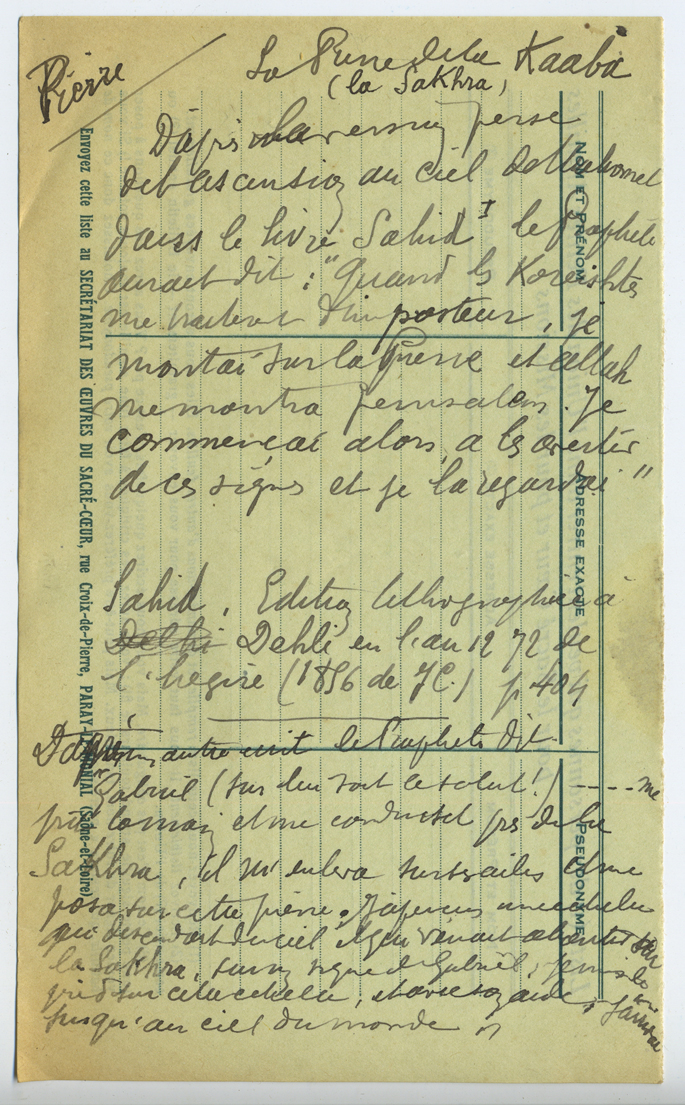 Pierre
La Pierre de la Kaaba
(la Sakhra)
D'après la version perse
de l'ascension au ciel de Mahomet
dans le livre Sahid I le Prophète
aurait dit : "Quand les Koreishtes
me traitent d'imposteur, je
montai sur la Pierre et allah
me montra Jerusalem. Je
commencai alors, a les avertir
de ces signes et je la regardai"
Sahid, Edition lithographiée à
Delhi Dehli en l'an 1272 de
l'hegire (1856 de J.C.) p 404
D'après un autre récit le Prophète dit
Gabriel (sur lui soit le salut!) ---- me
prit la main et me conduisit près de la
Sakhra, il m'enleva sur ses ailes et me
posa sur cette pierre. J'aperçus une echelle
qui descendait du ciel et qui venait aboutir sur
la Sakhra, sur un signe de Gabriel, je mis le
pied sur cette echelle, et avec son aide, j'arrivai
jusqu'au ciel du monde "
Envoyez cette liste au SECRÉTARIAT DES ŒUVRES DU SACRÉ-CŒUR, rue Croix-de-Pierre, PARAY-LE-MONIAL (Saône-et-Loire)
NOM ET PRÉNOM
ADRESSE EXACTE
PSEUDONYME